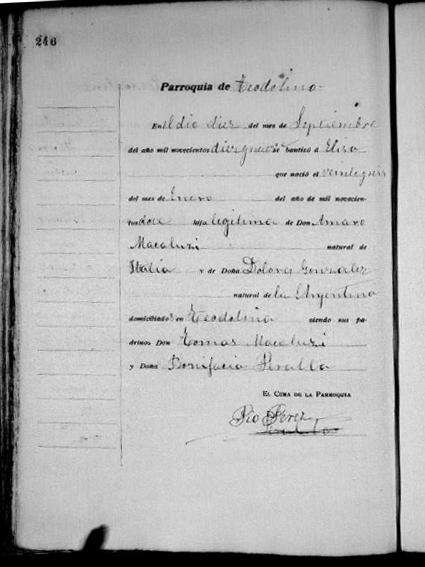 246
Parroquia de Teodolina
En el dia diez del mes de Septiembre
del año mil novecientos diez y nueve se bautizó á Elisa
que nació el veintiseis
del mes de Enero del año de mil novecien-
tos doce hija legitima de Don Amaro
Macaluzi natural de
Italia y de Doña Dolores Gonzalez
natural de la Argentina
domiciliados en Teodolina siendo sus pa-
drinos Don Tomas Macaluzi
y Doña Bonifacia Peralta
EL CURA DE LA PARROQUIA
Pio Perez